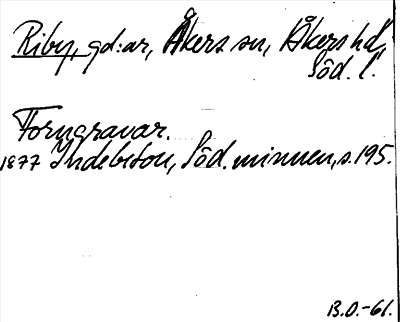 Riby, gd:ar, Åkers sn, Åkers hd,
Söd. l.
Forngravar.
1877 Indebetou, Söd. minnen, s. 195.
B.O.-61.